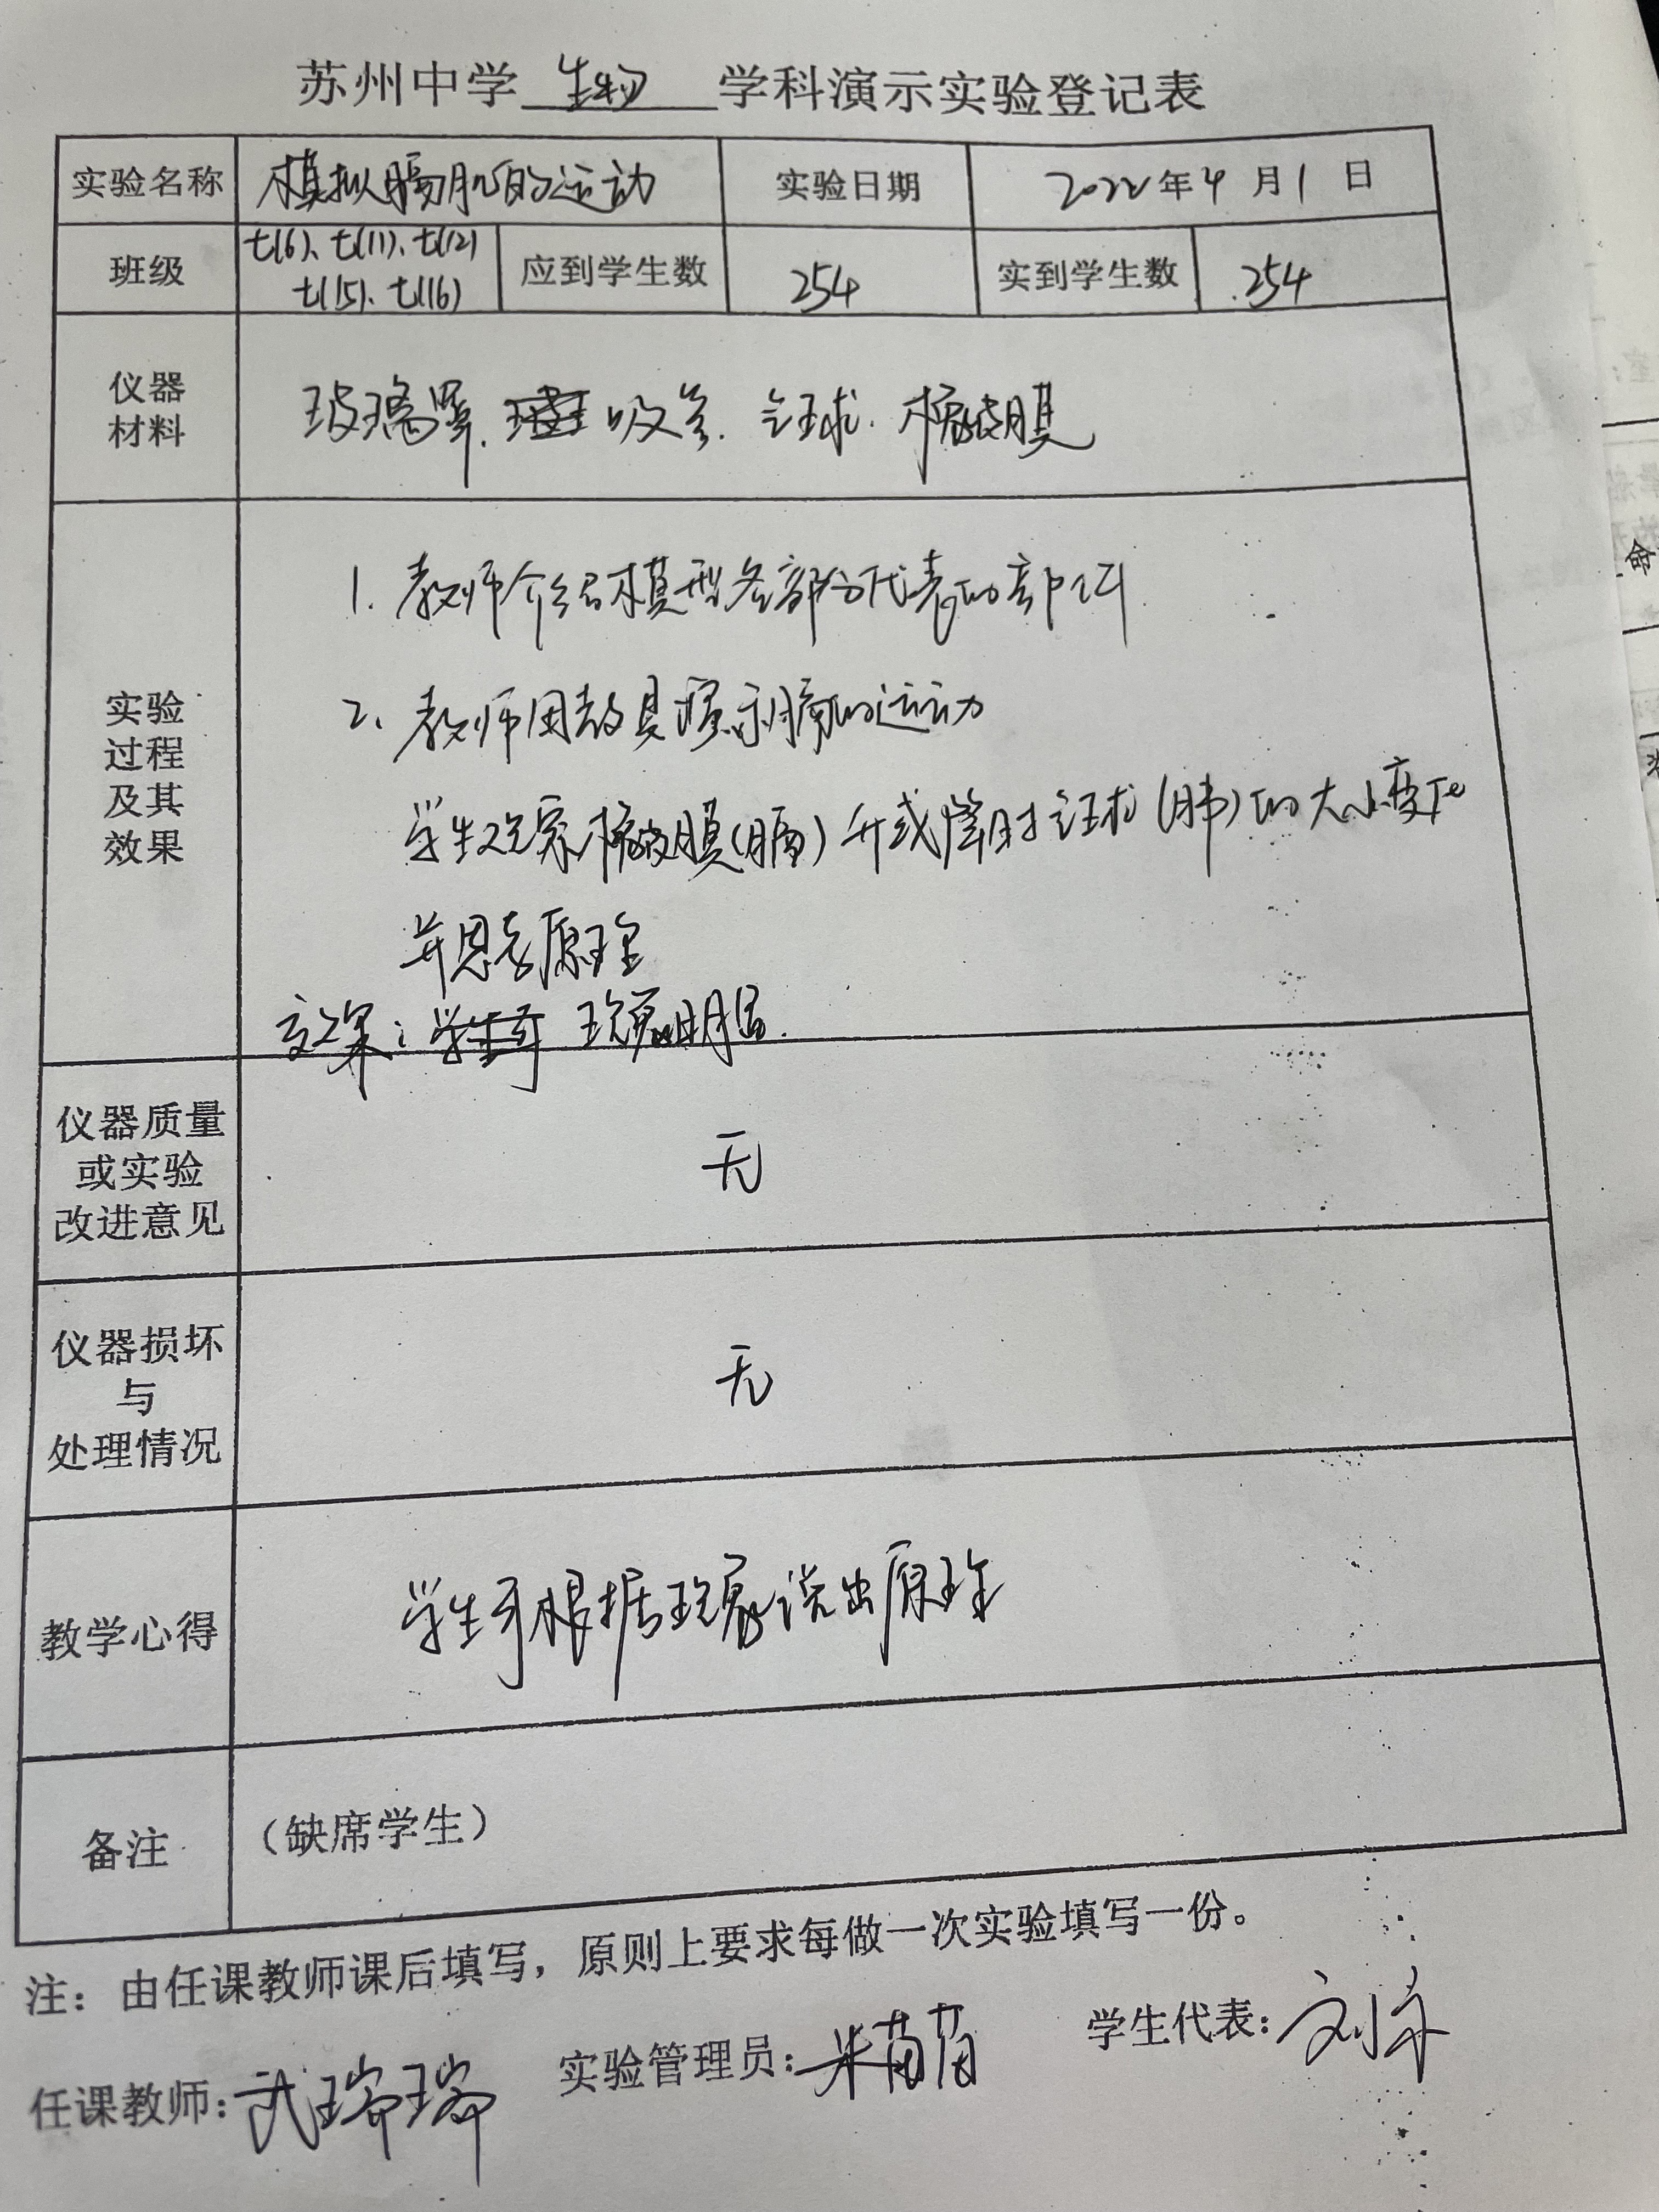 苏州中学 生物 学科演示实验登记表
实验名称 模拟膈肌的运动 实验日期 2022年4月1日
班级 七(6)、七(11)、七(12) 七(15)、七(16) 应到学生数 254 实到学生数 254
仪器
材料
玻璃罩、吸管、气球、橡皮膜
实验
过程
及其
效果
1. 教师介绍模型各部分代表的部位
2、教师用教具演示膈的运动
学生观察橡皮膜(膈)升或降时气球(肺)的大小变化
并思考原理
效果: 现象明显.
仪器质量
或实验
改进意见
无
仪器损坏
与
处理情况
无
教学心得 学生可根据现象说出原理
备注 (缺席学生)
注：由任课教师课后填写，原则上要求每做一次实验填写一份。
任课教师: 武瑞瑞 实验管理员: 朱茵茵 学生代表: 刘